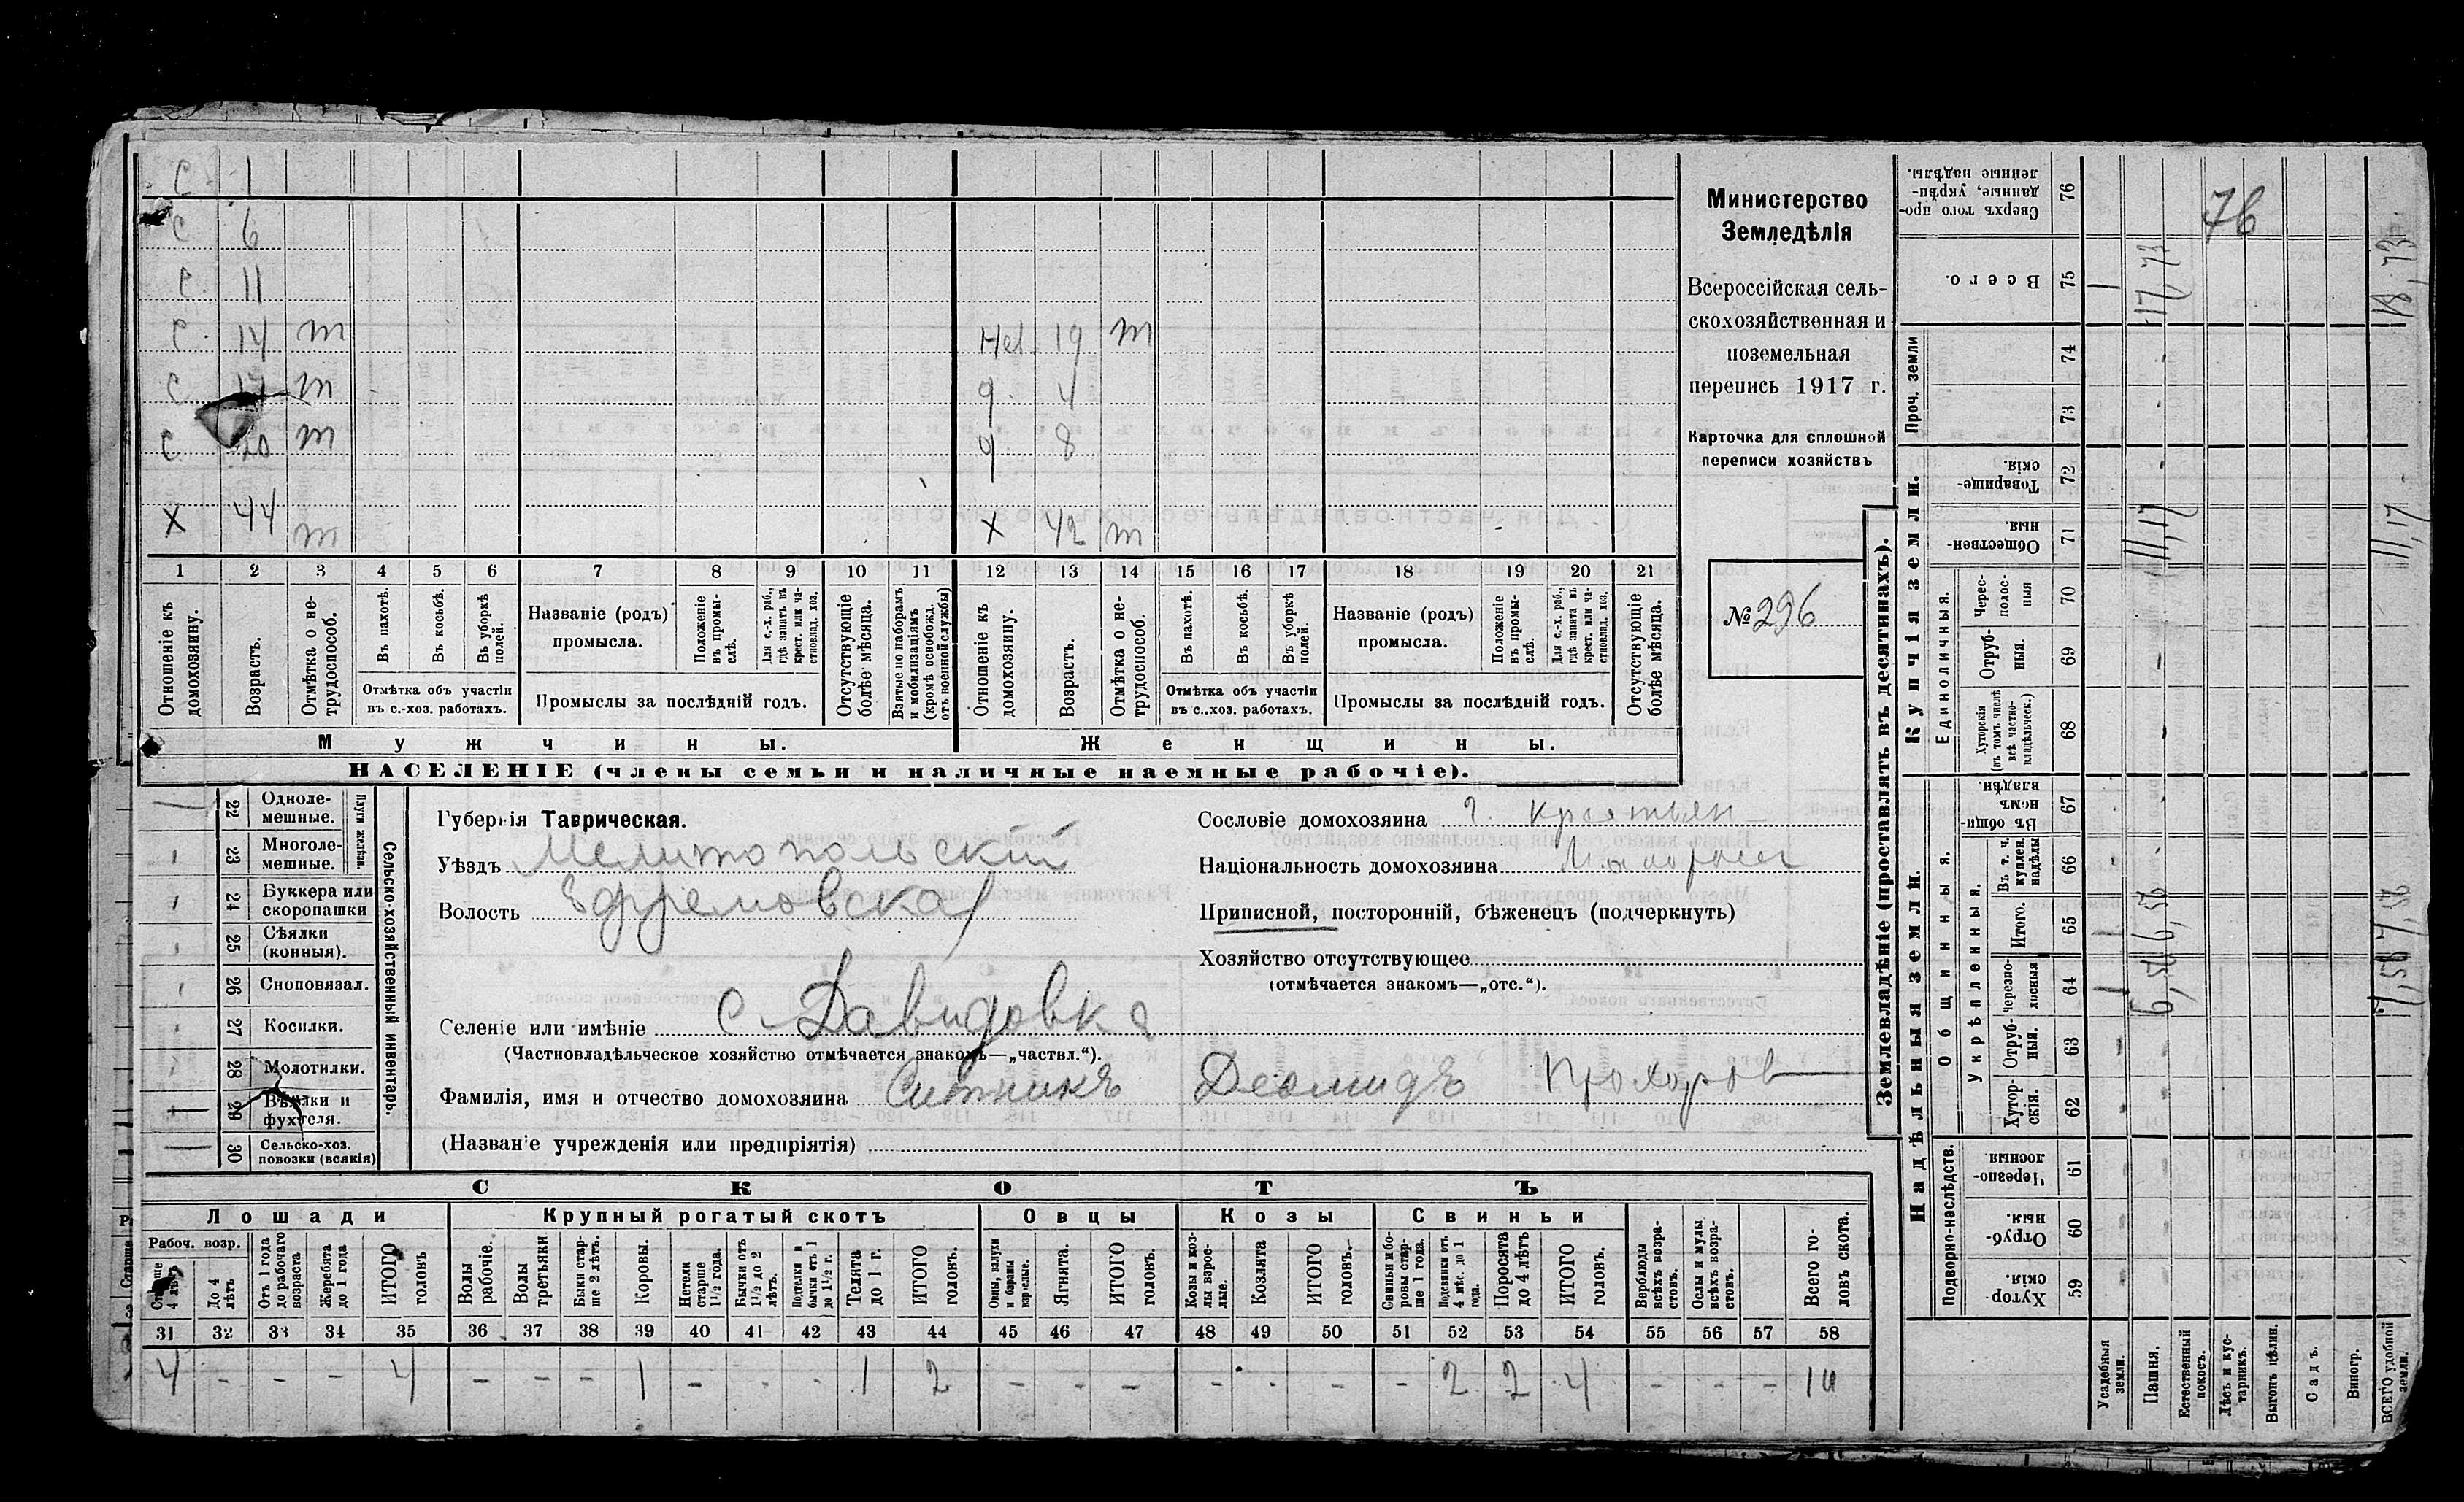 С 1
С 6
С 11
С 14 т
С т
С 20 т
Х 44 т
Нев 19 т
д 4
д 8
Х 42 т
1 2 3 4 5 6 7 8 9 10 11 12 13 14 15 16 17 18 19 20 21
Отношеніе къ домохозяину.
Возрастъ.
Отмѣтка о нетрудоспособ.
Въ пахотѣ.
Въ косьбѣ.
Въ уборкѣ полей.
Отмѣтка объ участіи въ с.-хоз. работахъ.
Названіе (родъ) промысла.
Положеніе въ промыслѣ.
Для с.-х. раб., гдѣ занятъ въ крест. или частновлад. хоз.
Промыслы за послѣдній годъ.
Отсутствующіе болѣе мѣсяца.
Взятые по наборамъ и мобилизаціямъ (кромѣ освобожд. отъ военной службы)
Отношеніе къ домохозяину.
Возрастъ.
Отмѣтка о нетрудоспособ.
Въ пахотѣ.
Въ косьбѣ.
Въ уборкѣ полей.
Отмѣтка объ участіи въ с.-хоз. работахъ.
Названіе (родъ) промысла.
Положеніе въ промыслѣ.
Для с.-х. раб., гдѣ занятъ въ крест. или частновлад. хоз.
Промыслы за послѣдній годъ.
Отсутствующіе болѣе мѣсяца.
Мужчины.
Женщины.
НАСЕЛЕНІЕ (члены семьи и наличные наемные рабочіе).
Министерство
Земледѣлія
Всероссійская сель-
скохозяйственная и
поземельная
перепись 1917 г.
Карточка для сплошной
переписи хозяйствъ
№ 296
22 Однолемешные.
23 Многолемешные.
Плуги желѣзн.
24 Буккера или скоропашки
25 Сѣялки (конныя).
26 Сноповязал.
27 Косилки.
28 Молотилки.
29 Вѣялки и фухтеля.
30 Сельско-хоз. повозки (всякія)
Сельско-хозяйственный инвентарь.
Губернія Таврическая.
Уѣздъ Мелитопольский
Волость Ефремовская
Селеніе или имѣніе с. Давидовка
(Частновладѣльческое хозяйство отмѣчается знакомъ—„частвл.“).
Фамилія, имя и отчество домохозяина Ситникъ Деомидъ Прохоров
(Названіе учрежденія или предпріятія)
Сословіе домохозяина г. крестьян
Національность домохозяина Малоросс
Приписной, посторонній, бѣженецъ (подчеркнуть)
Хозяйство отсутствующее
(отмѣчается знакомъ—„отс.“).
СКОТЪ
Лошади Крупный рогатый скотъ Овцы Козы Свиньи
Рабоч. возр.
Старше 4 лѣтъ
До 4 лѣтъ
Отъ 1 года до рабочаго возраста
Жеребята до 1 года
ИТОГО головъ
Волы рабочіе.
Волы третьяки.
Быки старше 2 лѣтъ.
Коровы.
Нетели старше 1½ года.
Бычки отъ 1½ до 2 лѣтъ.
Подтелки и бычки отъ 1 до 1½ г.
Телята до 1 г.
ИТОГО головъ.
Овцы, валухи и бараны взрослые.
Ягнята.
ИТОГО головъ.
Козы и козлы взрослые.
Козлята
ИТОГО головъ.
Свиньи и боровы старше 1 года.
Подсвинки отъ 4 мѣс. до 1 года.
Поросята до 4 лѣтъ
ИТОГО головъ.
Верблюды всѣхъ возрастовъ.
Ослы и мулы всѣхъ возрастовъ.
Всего головъ скота.
31 32 33 34 35 36 37 38 39 40 41 42 43 44 45 46 47 48 49 50 51 52 53 54 55 56 57 58
4 - - - 4 - - - 1 - - - 1 2 - - - - - - - 2 2 4 - - - 10
Землевладѣніе (проставлять въ десятинахъ).
Купчія земли.
Надѣльныя земли.
Сверхъ того проданные, укрѣпленные надѣлы. 76
Всего. 75
Проч. земли 74 73
Товарищескія. 72
Общественныя. 71
Единоличныя.
Чересполосныя 70
Отрубныя. 69
Хуторскія (въ томъ числѣ всѣ частновладѣльческ.) 68
Въ общинномъ владѣн. 67
Общинныя.
Укрѣпленныя.
Въ т. ч. куплен. надѣлы 66
Итого. 65
Черезполосныя 64
Отрубныя. 63
Хуторскія. 62
Подворно-наслѣдств.
Черезполосныя 61
Отрубныя. 60
Хуторскія 59
Усадебныя земли.
Пашня.
Естественный покосъ.
Лѣсъ и кустарникъ.
Выгонъ цѣлин.
Садъ.
Виногр.
ВСЕГО удобной земли.
76
1 17,73 18,73
11,17 11,17
1 6,56 7,56
1 6,56